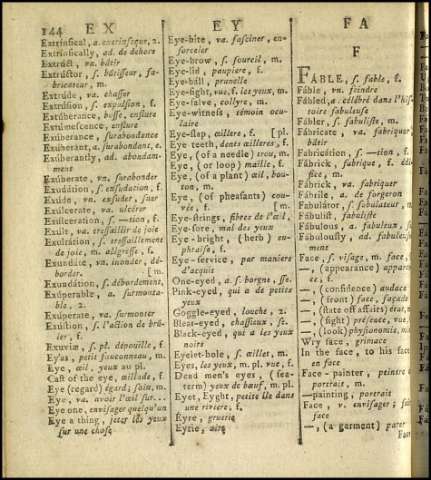 144 E X
E Y
F A
Extrinsical, a. extrinseque, 2.
Extrinsically, ad. de dehors
Extrúct, va. bâtir
Extrúctor, s. bâtisseur, fa-
bricateur, m.
Extrúde, va. chasser
Extrúsion, s. expulsion, f.
Extúberance, bosse, enflure
Extuméscence, enflure
Exúberance, surabondance
Exúberant, a. surabondant, e.
Exúberantly, ad. abondam-
ment
Exúberate, vn. surabonder
Exudátion, s. exsudation, f.
Exúde, vn. exsuder, suer
Exúlcerate, va. ulcérer
Exulcerátion, s. —tion, f.
Exúlt, va. tressaillir de joie
Exultátion, s. tressaillement
de joie, m. allégresse, f.
Exúndate, va. inonder, dé-
border. [m.
Exundátion, s. débordement,
Exúperable, a. surmonta-
ble, 2.
Exúperate, va. surmonter
Exústion, s. l'action de brû-
ler, f.
Exuviæ, s. pl. dépouille, f.
Ey'as, petit fauconneau, m.
Eye, œil, yeux au pl.
Cast of the eye, œillade, f.
Eye (regard) égard; soin, m.
Eye, va. avoir l'œil sur...
Eye one, envisager quelqu'un
Eye a thing, jeter les yeux
sur une chose
Eye-bite, va. fasciner, en-
sorceler
Eye-brow, s. sourcil, m.
Eye-lid, paupiere, f.
Eye-ball, prunelle
Eye-sight, vue, f. les yeux, m.
Eye-salve, collyre, m.
Eye-witness, témoin ocu-
laire
Eye-flap, œillere, f. [pl.
Eye teeth, dents œilleres, f.
Eye, (of a needle) trou, m.
Eye, (or loop) maille, f.
Eye, (of a plant) œil, bou-
ton, m.
Eye, (of pheasants) cou-
vée, f. [m.
Eye-strings, fibres de l'œil,
Eye-sore, mal des yeux
Eye-bright, (herb) eu-
phraise, f.
Eye-service, par maniere
d'acquit
One-eyed, a. s. borgne, sse.
Pink-eyed, qui a de petits
yeux
Goggle-eyed, louche, 2.
Blear-eyed, chassieux, se.
Black-eyed, qui a les yeux
noirs
Eyelet-hole, s. œillet, m.
Eyes, les yeux, m. pl. vue, f.
Dead men's eyes, (sea-
term) yeux de bœuf, m. pl.
Eyet, Eyght, petite île dans
une riviere, f.
Eyre, gruerie
Eyrie, aire
F
FÁBLE, s. fable, f.
Fáble, vn. feindre
Fábled, a. célébré dans l'his
toire fabuleuse
Fábler, s. fabuliste, m.
Fábricate, va. fabriquer,
bâtir
Fabricátion, s. —tion, f.
Fábrick, fabrique, f. édi
fice, m.
Fábrick, va. fabriquer
Fábrile, a. de forgeron
Fabulátor, s. fabulateur, m
Fábulist, fabuliste
Fábulous, a. fabuleux, se
Fábulously, ad. fabuleuse
ment
Face, s. visage, m. face, f
—, (appearance) apparen
ce, f.
—, (confidence) audace
—, (front) face, façade
—, (state of affairs) état, m
—, (sight) présence, vue
—, (look) physionomie, mi
Wry face, grimace
In the face, to his face
en face
Face-painter, peintre
portrait, m.
—painting, portrait
Face, v. envisager; fai
face
—, (a garment) parer
Face